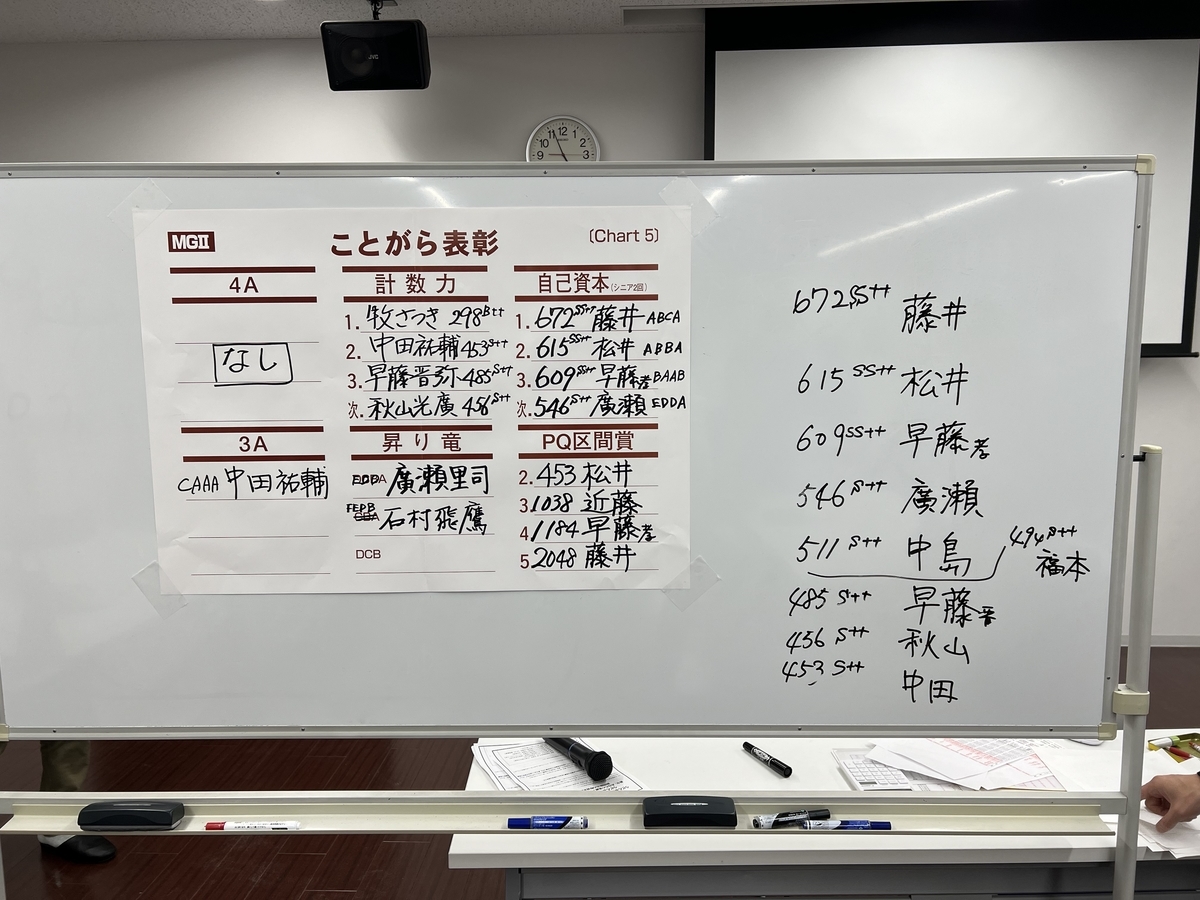 JVC
10 11 12 1 2
9 3
MGⅡ
ことがら表彰
〔Chart 5〕
4A
なし
3A
CAAA 中田祐輔
計数力
1. 牧さつき 298B++
2. 中田祐輔 453S++
3. 早藤晋弥 485S++
次. 秋山光廣 456S++
昇り竜
廣瀬里司
FEPB
石村飛鷹
DCB
自己資本(シニア2回)
1. 672SS++ 藤井 ABCA
2. 615SS++ 松井 ABBA
3. 609SS++ 早藤孝 BAAB
次. 546S++ 廣瀬 EDDA
PQ区間賞
2. 453 松井
3 1038 近藤
4 1184 早藤孝
5 2048 藤井
672SS++ 藤井
615 SS++ 松井
609SS++ 早藤孝
546 S++ 廣瀬
511 S++ 中島
494S++ 福本
485 S++ 早藤晋
456 S++ 秋山
453 S++ 中田